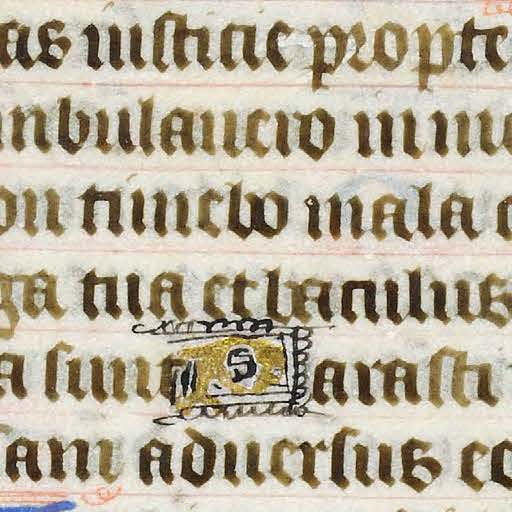 as iusticie propte
mbulauero in me
on timebo mala
ga tua et baculus
a sunt Parasti
sam aduersus eo